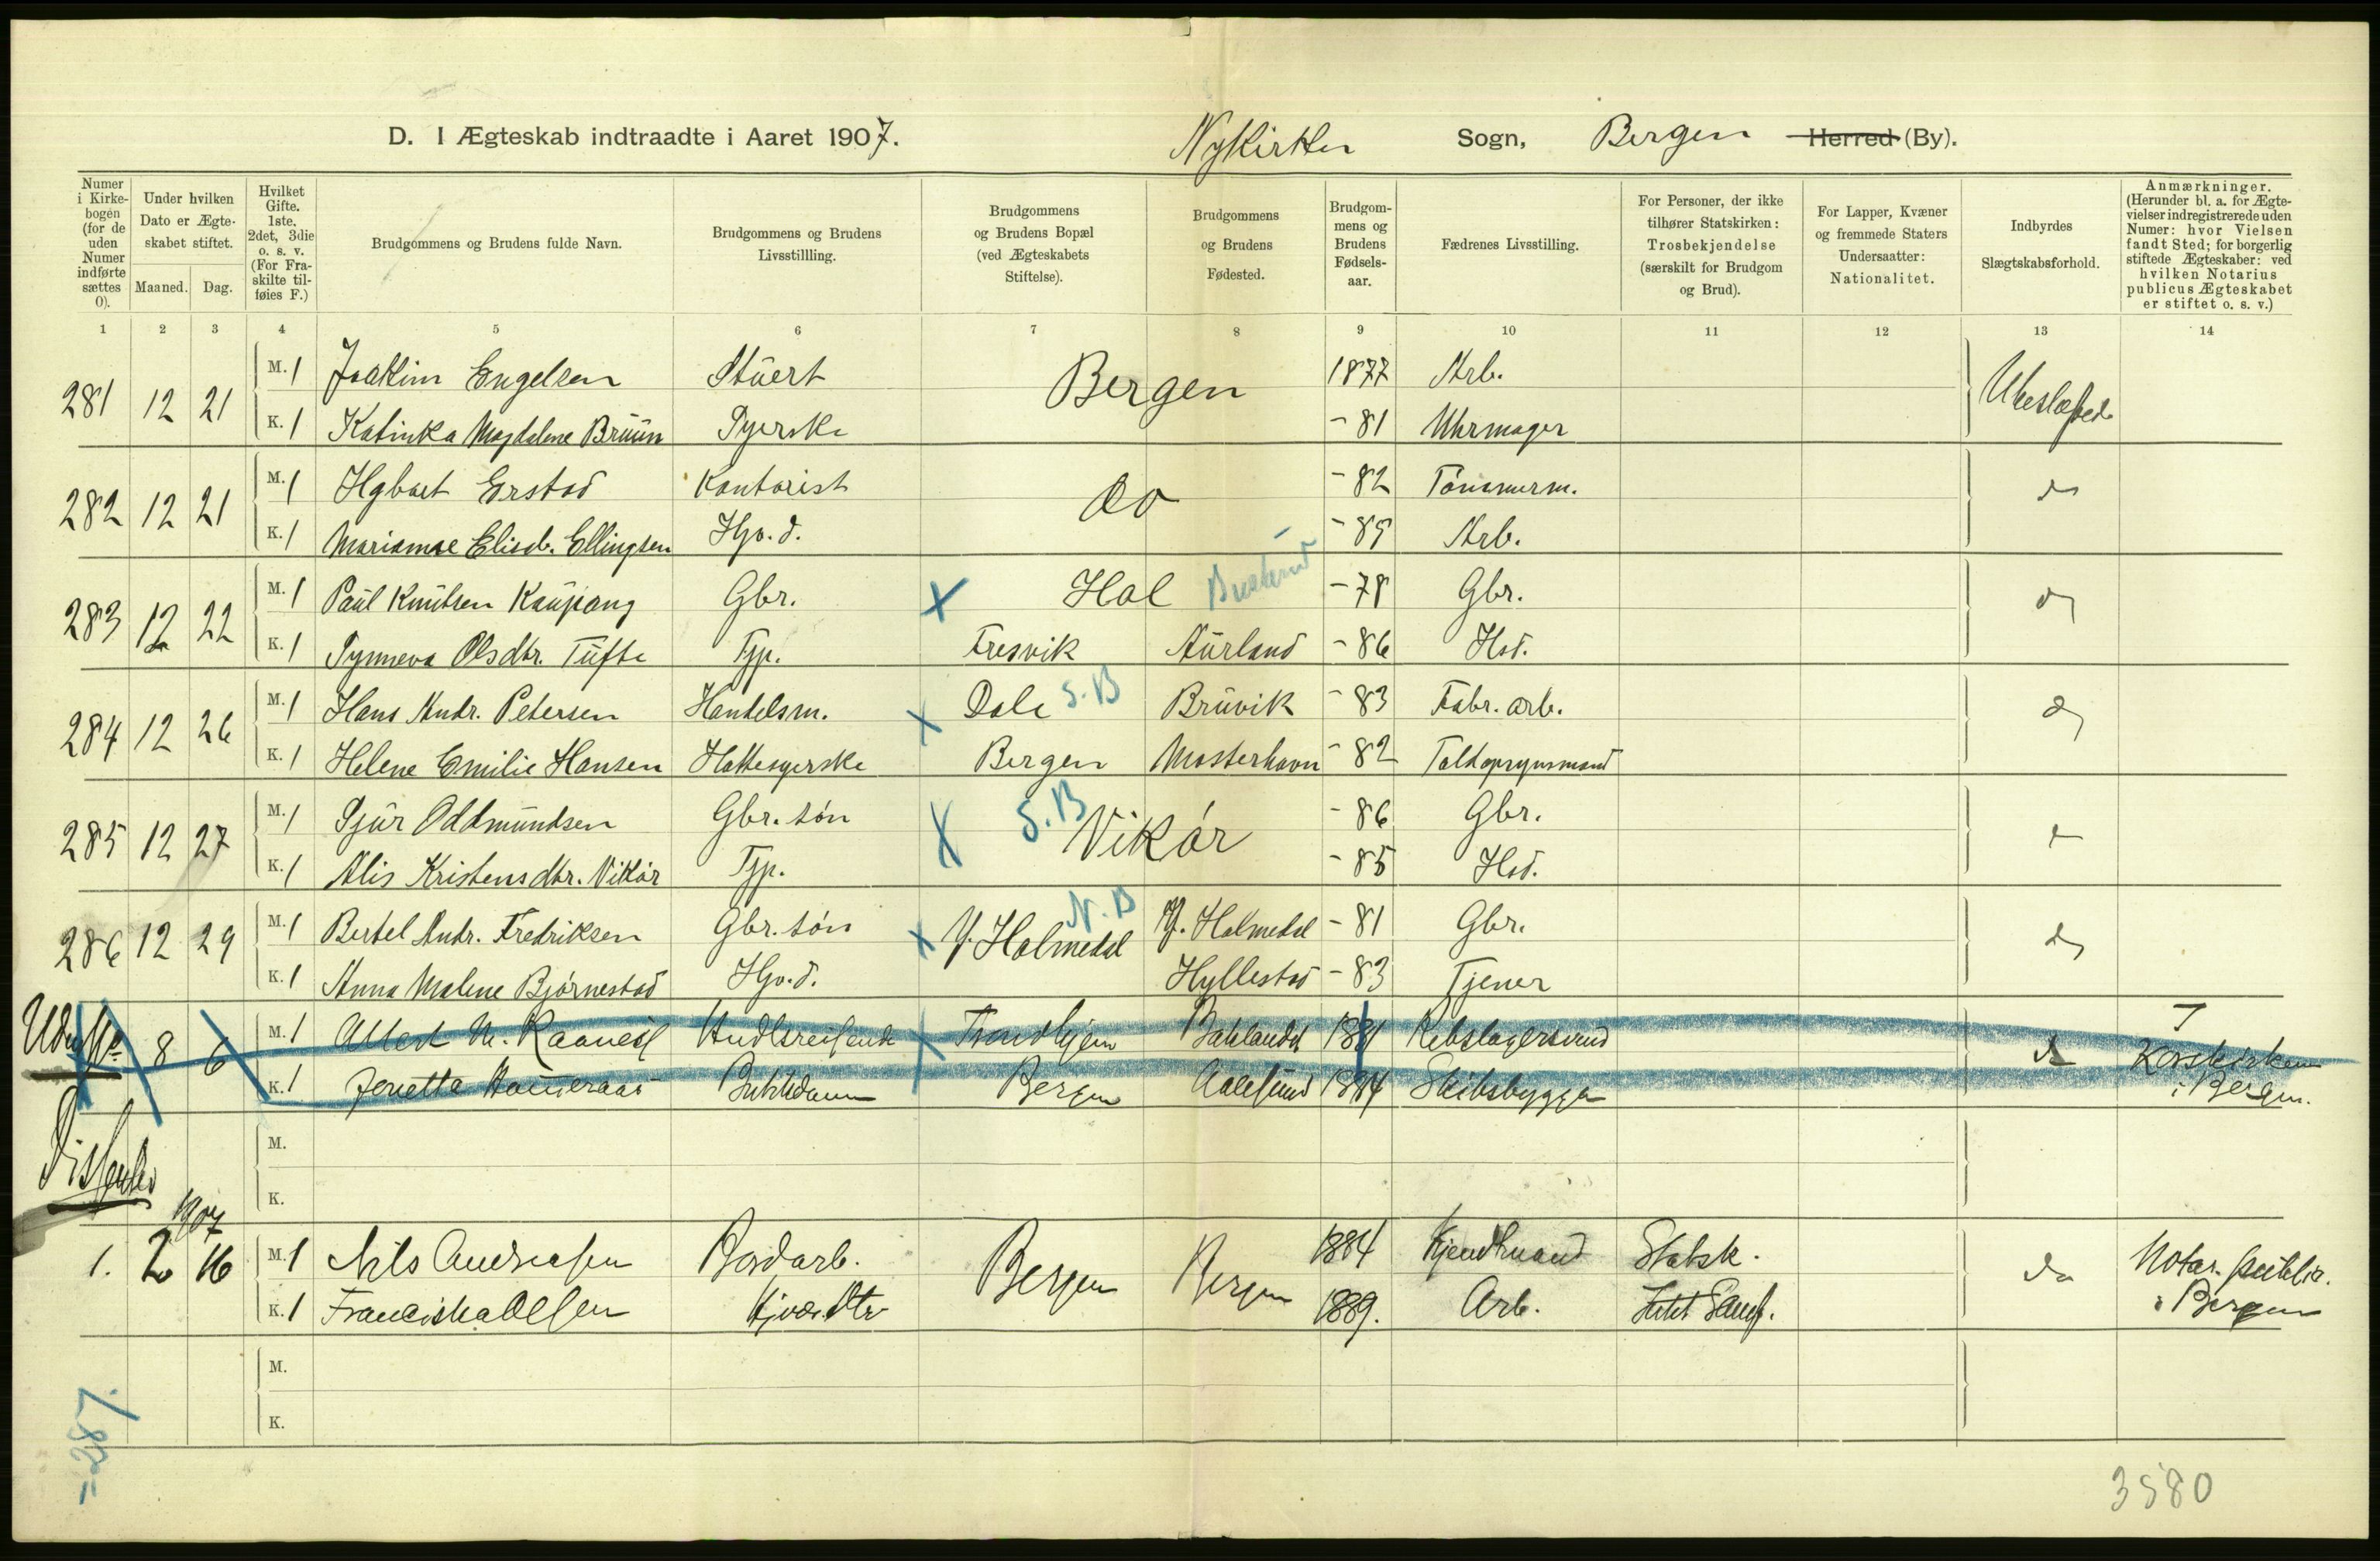 D. I Ægteskab indtraadte i Aaret 1907. Nykirken Sogn, Bergen Herred (By).
Numer i Kirkebogen (for de uden Numer indførte sættes 0).
Under hvilken Dato er Ægteskabet stiftet.
Maaned. Dag.
Hvilket Gifte. 1ste, 2det, 3die o. s. v. (For Fraskilte tilføies F.)
Brudgommens og Brudens fulde Navn.
Brudgommens og Brudens Livsstillling.
Brudgommens og Brudens Bopæl (ved Ægteskabets Stiftelse).
Brudgommens og Brudens Fødested.
Brudgommens og Brudens Fødselsaar.
Fædrenes Livsstilling.
For Personer, der ikke tilhører Statskirken: Trosbekjendelse (særskilt for Brudgom og Brud).
For Lapper, Kvæner og fremmede Staters Undersaatter: Nationalitet.
Indbyrdes Slægtskabsforhold.
Anmærkninger. (Herunder bl. a. for Ægtevielser indregistrerede uden Numer: hvor Vielsen fandt Sted; for borgerlig stiftede Ægteskaber: ved hvilken Notarius publicus Ægteskabet er stiftet o. s. v.)
1 2 3 4 5 6 7 8 9 10 11 12 13 14
281 12 21 M. 1 Joakim Engelsen Stuert Bergen 1877 Arb. Ubeslægtede
K. 1 Katinka Magdalene Bruün Syerske - 81 Uhrmager
282 12 21 M. 1 Hgbart Erstad Kontorist do - 82 Tømmerm. do
K. 1 Marianne Elisab. Ellingsen Hjv. d. - 89 Arb.
283 12 22 M. 1 Paül Knütsen Kaüpang Gbr. X Hol Buskerud - 78 Gbr. do
K. 1 Synneva Olsdtr. Tüfte Tjp. Fresvik Aürland - 86 Hsd.
284 12 26 M. 1 Hans Andr. Petersen Handelsm. X Dale S. B Brüvik - 83 Fabr. arb. do
K. 1 Helene Emilie Hansen Hattesyerske Bergen Mosterhavn - 82 Toldopsynsmand
285 12 27 M. 1 Sjür Oddmündsen Gbr. søn X S. B Vikør - 86 Gbr. do
K. 1 Alis Kristensdtr. Vikør Tjp. - 85 Hsd.
286 12 29 M. 1 Bertel Andr. Fredriksen Gbr. søn X Y. Holmedal N. B Y. Holmedal - 81 Gbr. do
K. 1 Anna Malene Bjørnestad Hjv. d. Hyllestad - 83 Tjener
8 6 M. 1 Albert M. Handlsreisende X Trondhjem Baklandet 1881 Rebslagersvend do Korskirken
K. 1 Jenetta Butikdame Bergen Aalesund 1884 Skibsbygger i Bergen.
M.
Dissenter
K.
1907
1. 2 16 M. 1 Nils Andreasen Bordarb. Bergen Bergen 1884 Statsk. do Notar. public.
K. 1 Franciska Olsen Hjvær. Dtr 1889. Arb. i Bergen
M.
K.
= 287.
3580